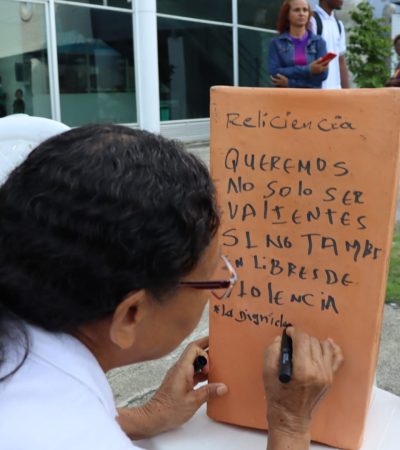 Reliciencia
QUEREMOS
No Solo SER
VALIENTES
SINO TAMBI
N LIBRES DE
VIOLENCIA
*La Dignida